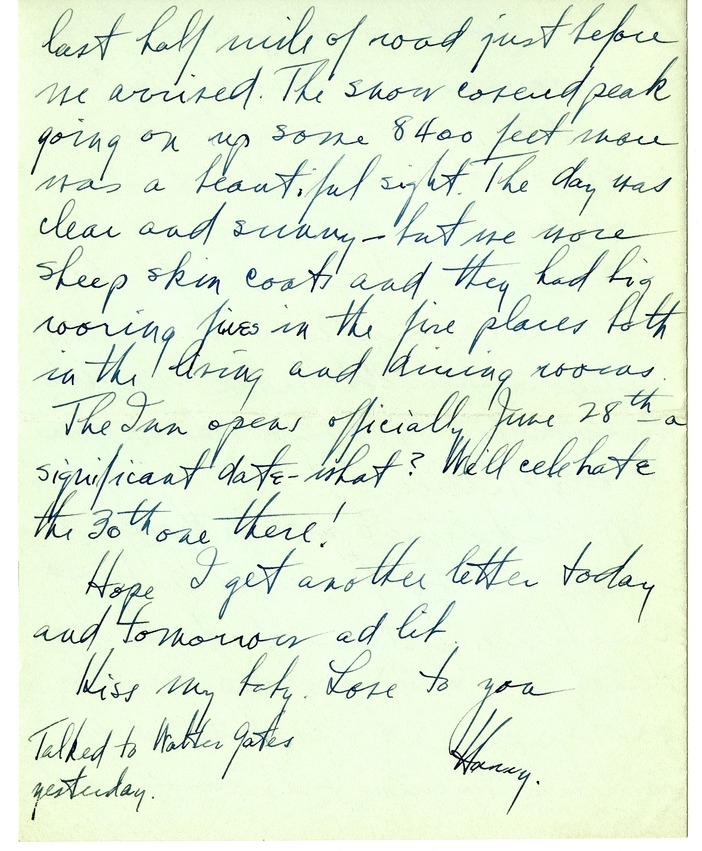 last half mile of road just before
we arrived. The snow covered peak
going on up some 8400 feet more
was a beautiful sight. The day was
clear and sunny - but we wore
sheep skin coats and they had big
rooring fires in the fire places both
in the living and dining rooms.
The Inn opens officially June 28th - a
significant date - what? We'll celebrate
the 30th one there!
Hope I get another letter today
and tomorrow ad lib.
Kiss my baby. Love to you
Harry.
Talked to Walter Gates
yesterday.